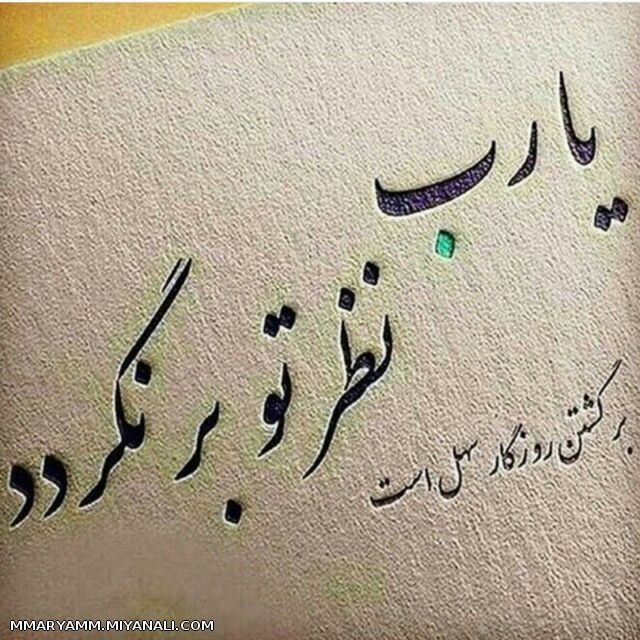 یا رب
نظر تو بر نگردد
برگشتن روزگار سهل است
MMARYAMM.MIYANALI.COM